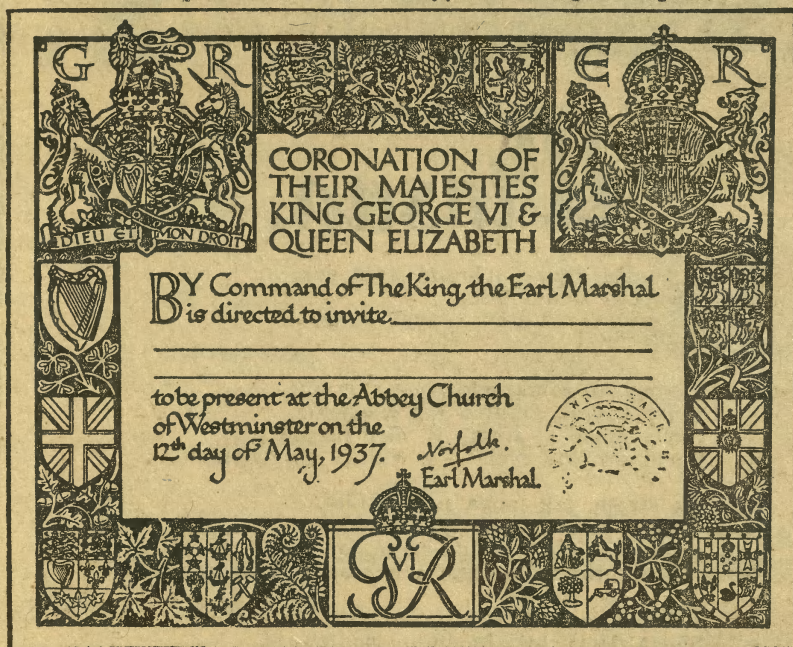 G R
E R
CORONATION OF
THEIR MAJESTIES
KING GEORGE VI &
QUEEN ELIZABETH
DIEU ET MON DROIT
BY Command of The King, the Earl Marshal
is directed to invite
to be present at the Abbey Church
of Westminster on the
12th day of May, 1937.
Norfolk.
Earl Marshal.
G VI R